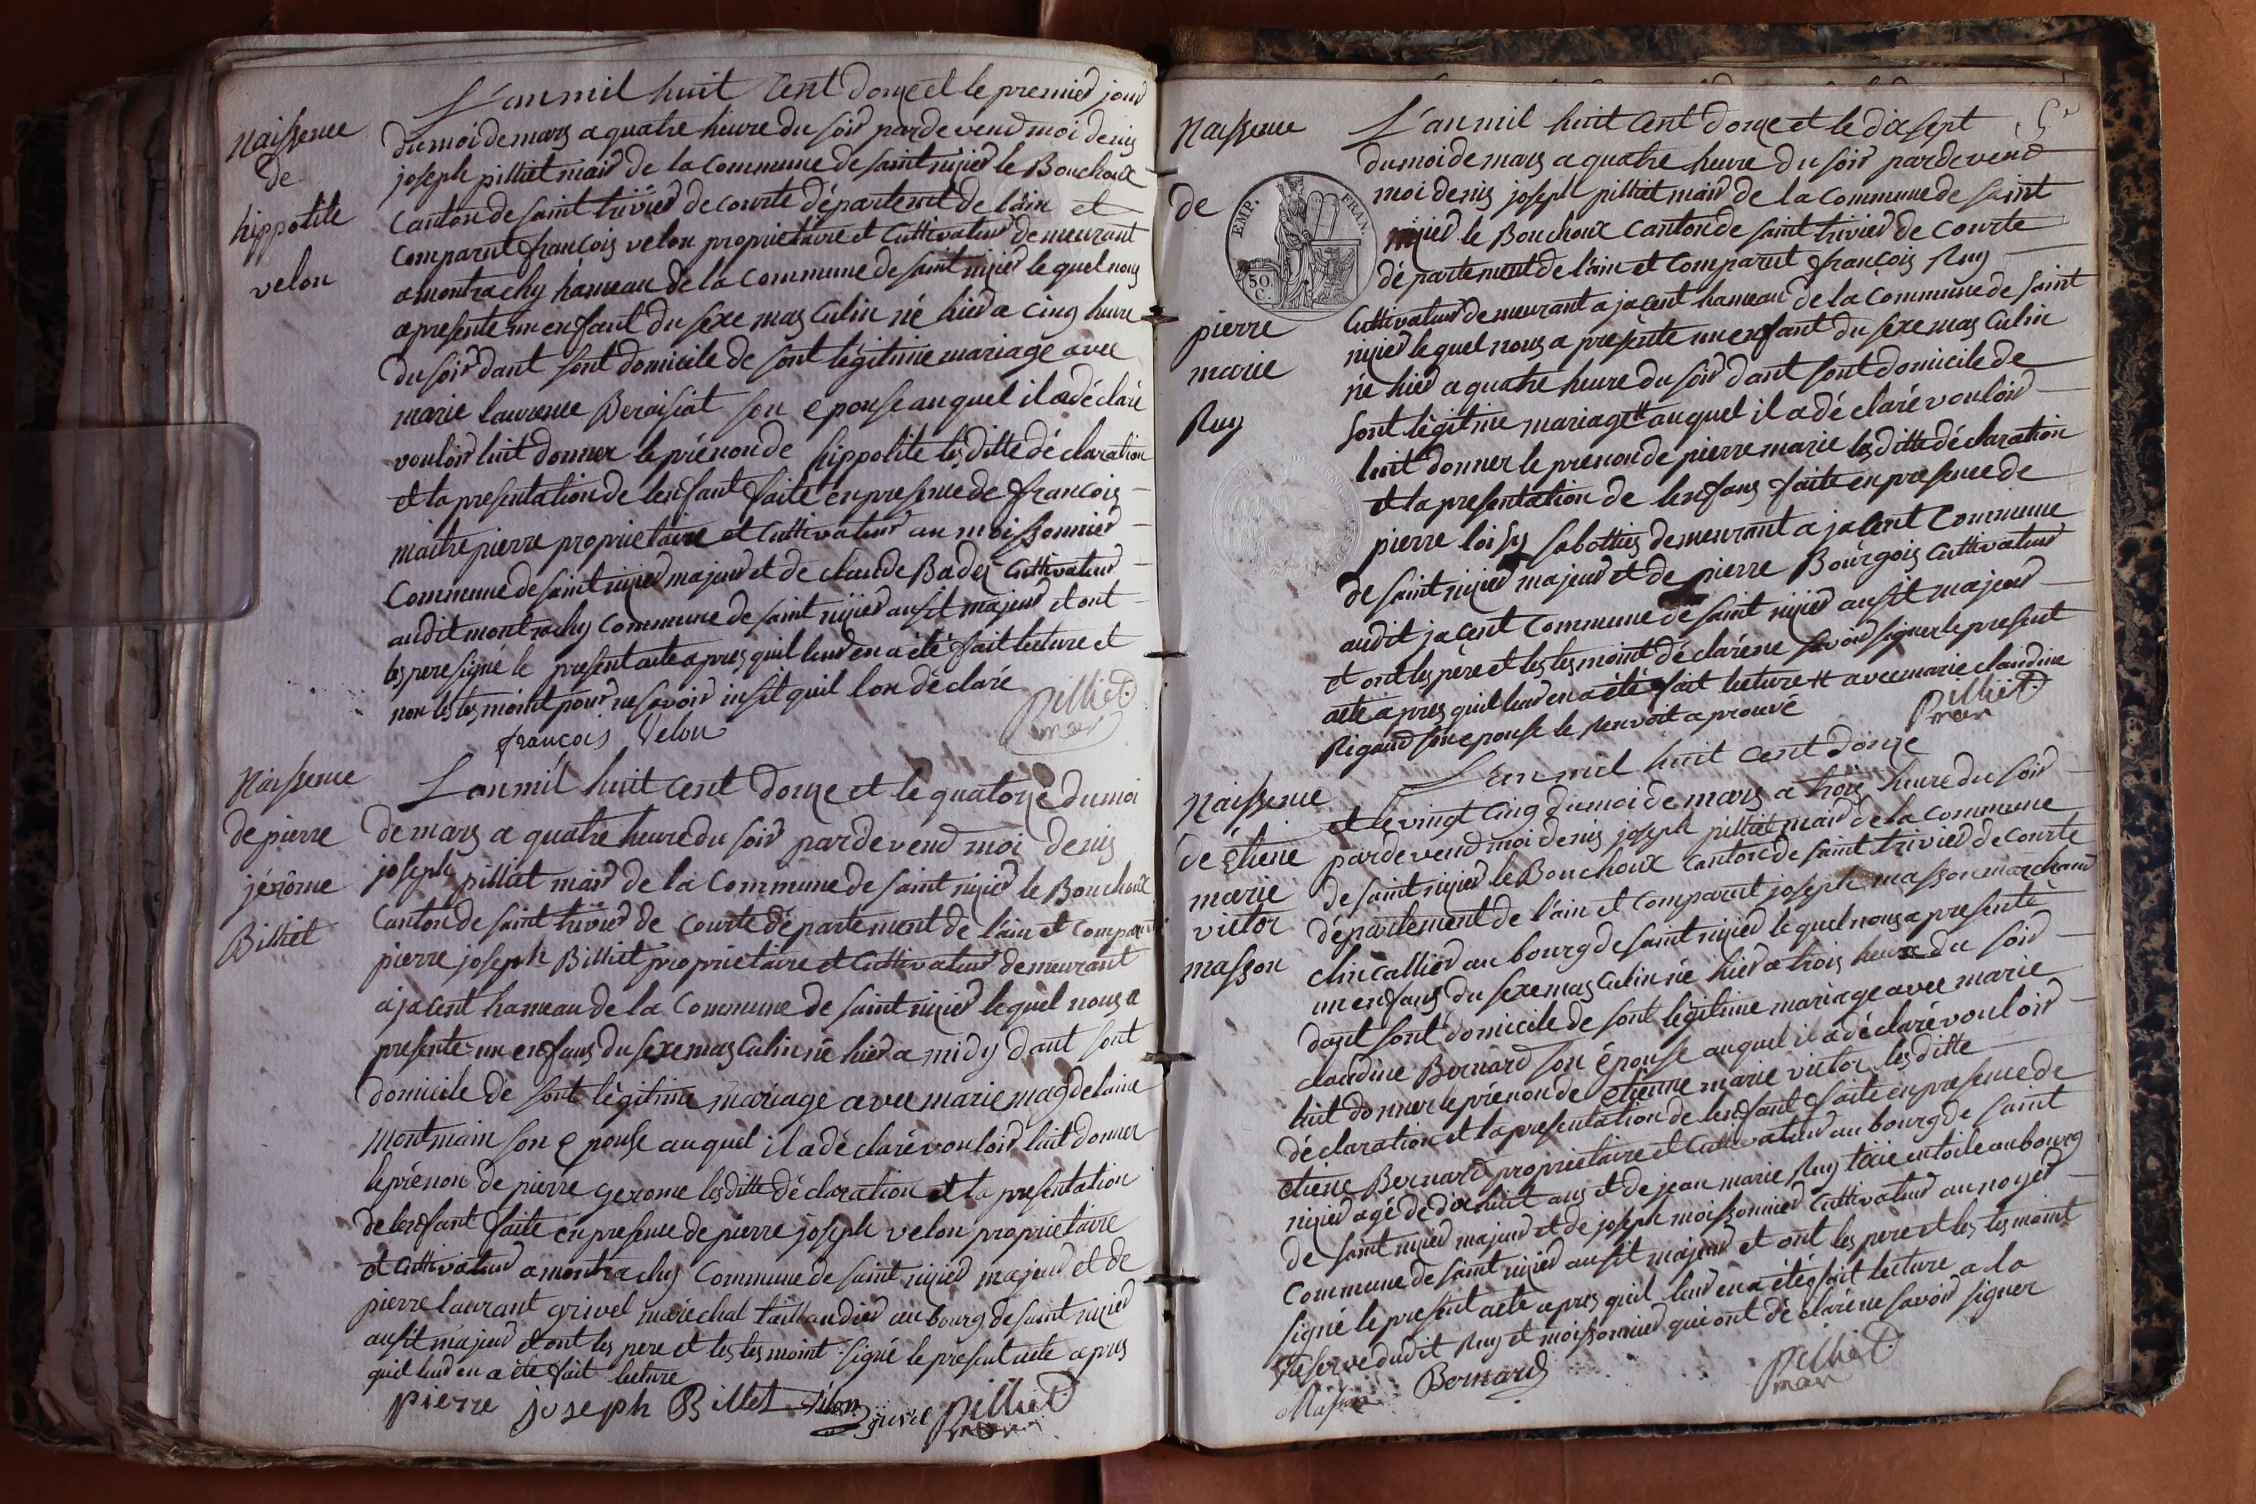 Naissence
de
hippolite
velon
L'an mil huit Cent douze et le premier jour
du moi de mars a quatre heure du soir par devend moi denis
joseph pilliet mair de la Commune de saint nizier le Bouchoux
Canton de saint trivier de courte département de l'ain et
Comparut françois velon proprietaire et Cultivateur demeurant
a montrachy hameau de la Commune de saint nizier le quel nous
a presente un enfant du sexe mas Culin né hier a Cinq heure
du soir dant sont domicile de sont légitime mariage avec
marie laurence Beraisiat son epouse auquel il a déclaré
vouloir luit donner le prénon de hippolite les ditte déclaration
et la presentation de lenfant faite en presence de françois
maitre pierre proprietaire et Cultivateur au moissonnier
Commune de saint nizier majeur et de claude Badez Cultivateur
audit montrachy Commune de saint nizier ausit majeur et ont
les pere signé le present acte apres quil leur en a été fait lecture et
non les tesmoint pour ne savoir insit quil lon déclaré
françois Velon
Pilliet
mair
Naissence
de pierre
jérôme
Billiet
L'an mil huit Cent douze et le quatorze du moi
de mars a quatre heure du soir par devend moi denis
joseph pilliet mair de la Commune de saint nizier le Bouchoux
Canton de saint trivier de Courte département de l'ain et Comparut
pierre joseph Billiet proprietaire et Cultivateur demeurant
a jacent hameau de la Commune de saint nizier le quel nous a
presente un enfans du sexe mas Culin né hier a midy dant sont
domicile de sont légitime mariage avec marie magdelaine
Montmain son epouse auquel il a déclaré vouloir luit donner
le prénon de pierre gerome les ditte déclaration et la presentation
de lenfant faite en presence de pierre joseph velon proprietaire
et Cultivateur a montrachy Commune de saint nizier majeur et de
pierre laurant grivel maréchal taillandier au bourg de saint nizier
ausit majeur et ont les pere et les tesmoint signé le present acte apres
quil leur en a été fait lecture
pierre joseph Billet velon grivel Pilliet
mair
Naissence
de
pierre
marie
Ruy
EMP. FRAN.
50
C.
L'an mil huit Cent douze et le dix sept
du moi de mars a quatre heure du soir par devend
moi denis joseph pilliet mair de la Commune de saint
nizier le Bouchoux Canton de saint trivier de Courte
département de l'ain et Comparut françois Ruy
Cultivateur demeurant a jacent hameau de la Commune de saint
nizier le quel nous a presente un enfant du sexe mas Culin
né hier a quatre heure du soir dant sont domicile de
sont légitime mariage # auquel il a déclaré vouloir
luit donner le prenon de pierre marie les ditte déclaration
et la presentation de lenfans faite en presence de
pierre loisy sabottier demeurant a jacent Commune
de saint nizier majeur et de pierre Bourgois Cultivateur
audit jacent Commune de saint nizier ausit majeur
et ont les père et les tesmoint déclaré ne savoir signer le present
acte apres quil leur en a été fait lecture # avec marie claudine
Rigaud son epouse le renvoit aprouvé
Pilliet
mair
Naissence
de étiene
marie
victor
masson
L'an mil huit cent douze
et le vingt Cinq du moi de mars a trois heure du soir
par devend moi denis joseph pilliet mair de la Commune
de saint nizier le Bouchoux Canton de saint trivier de Courte
département de l'ain et Comparut joseph masson marchand
clincallier au bourg de saint nizier le quel nous a presenté
un enfans du sexe mas Culin né hier a trois heure du soir
dant sont domicile de sont légitime mariage avec marie
claudine Bernard son épouse auquel il a déclaré vouloir
luit donner le prénon de etienne marie victor les ditte
déclaration et la presentation de lenfant faite en presence de
etiene Bernard proprietaire et Cultivateur au bourg de saint
nizier agé de dix huit ans et de jean marie Ruy texie en toile au bourg
de saint nizier majeur et de joseph moissonnier Cultivateur au noyer
Commune de saint nizier ausit majeur et ont les pere et les tesmoint
signé le present acte apres quil leur en a été fait lecture a la
reserve dudit Ruy et moissonnier qui ont déclaré ne savoir signer
Masson Bernard
Pilliet
mair